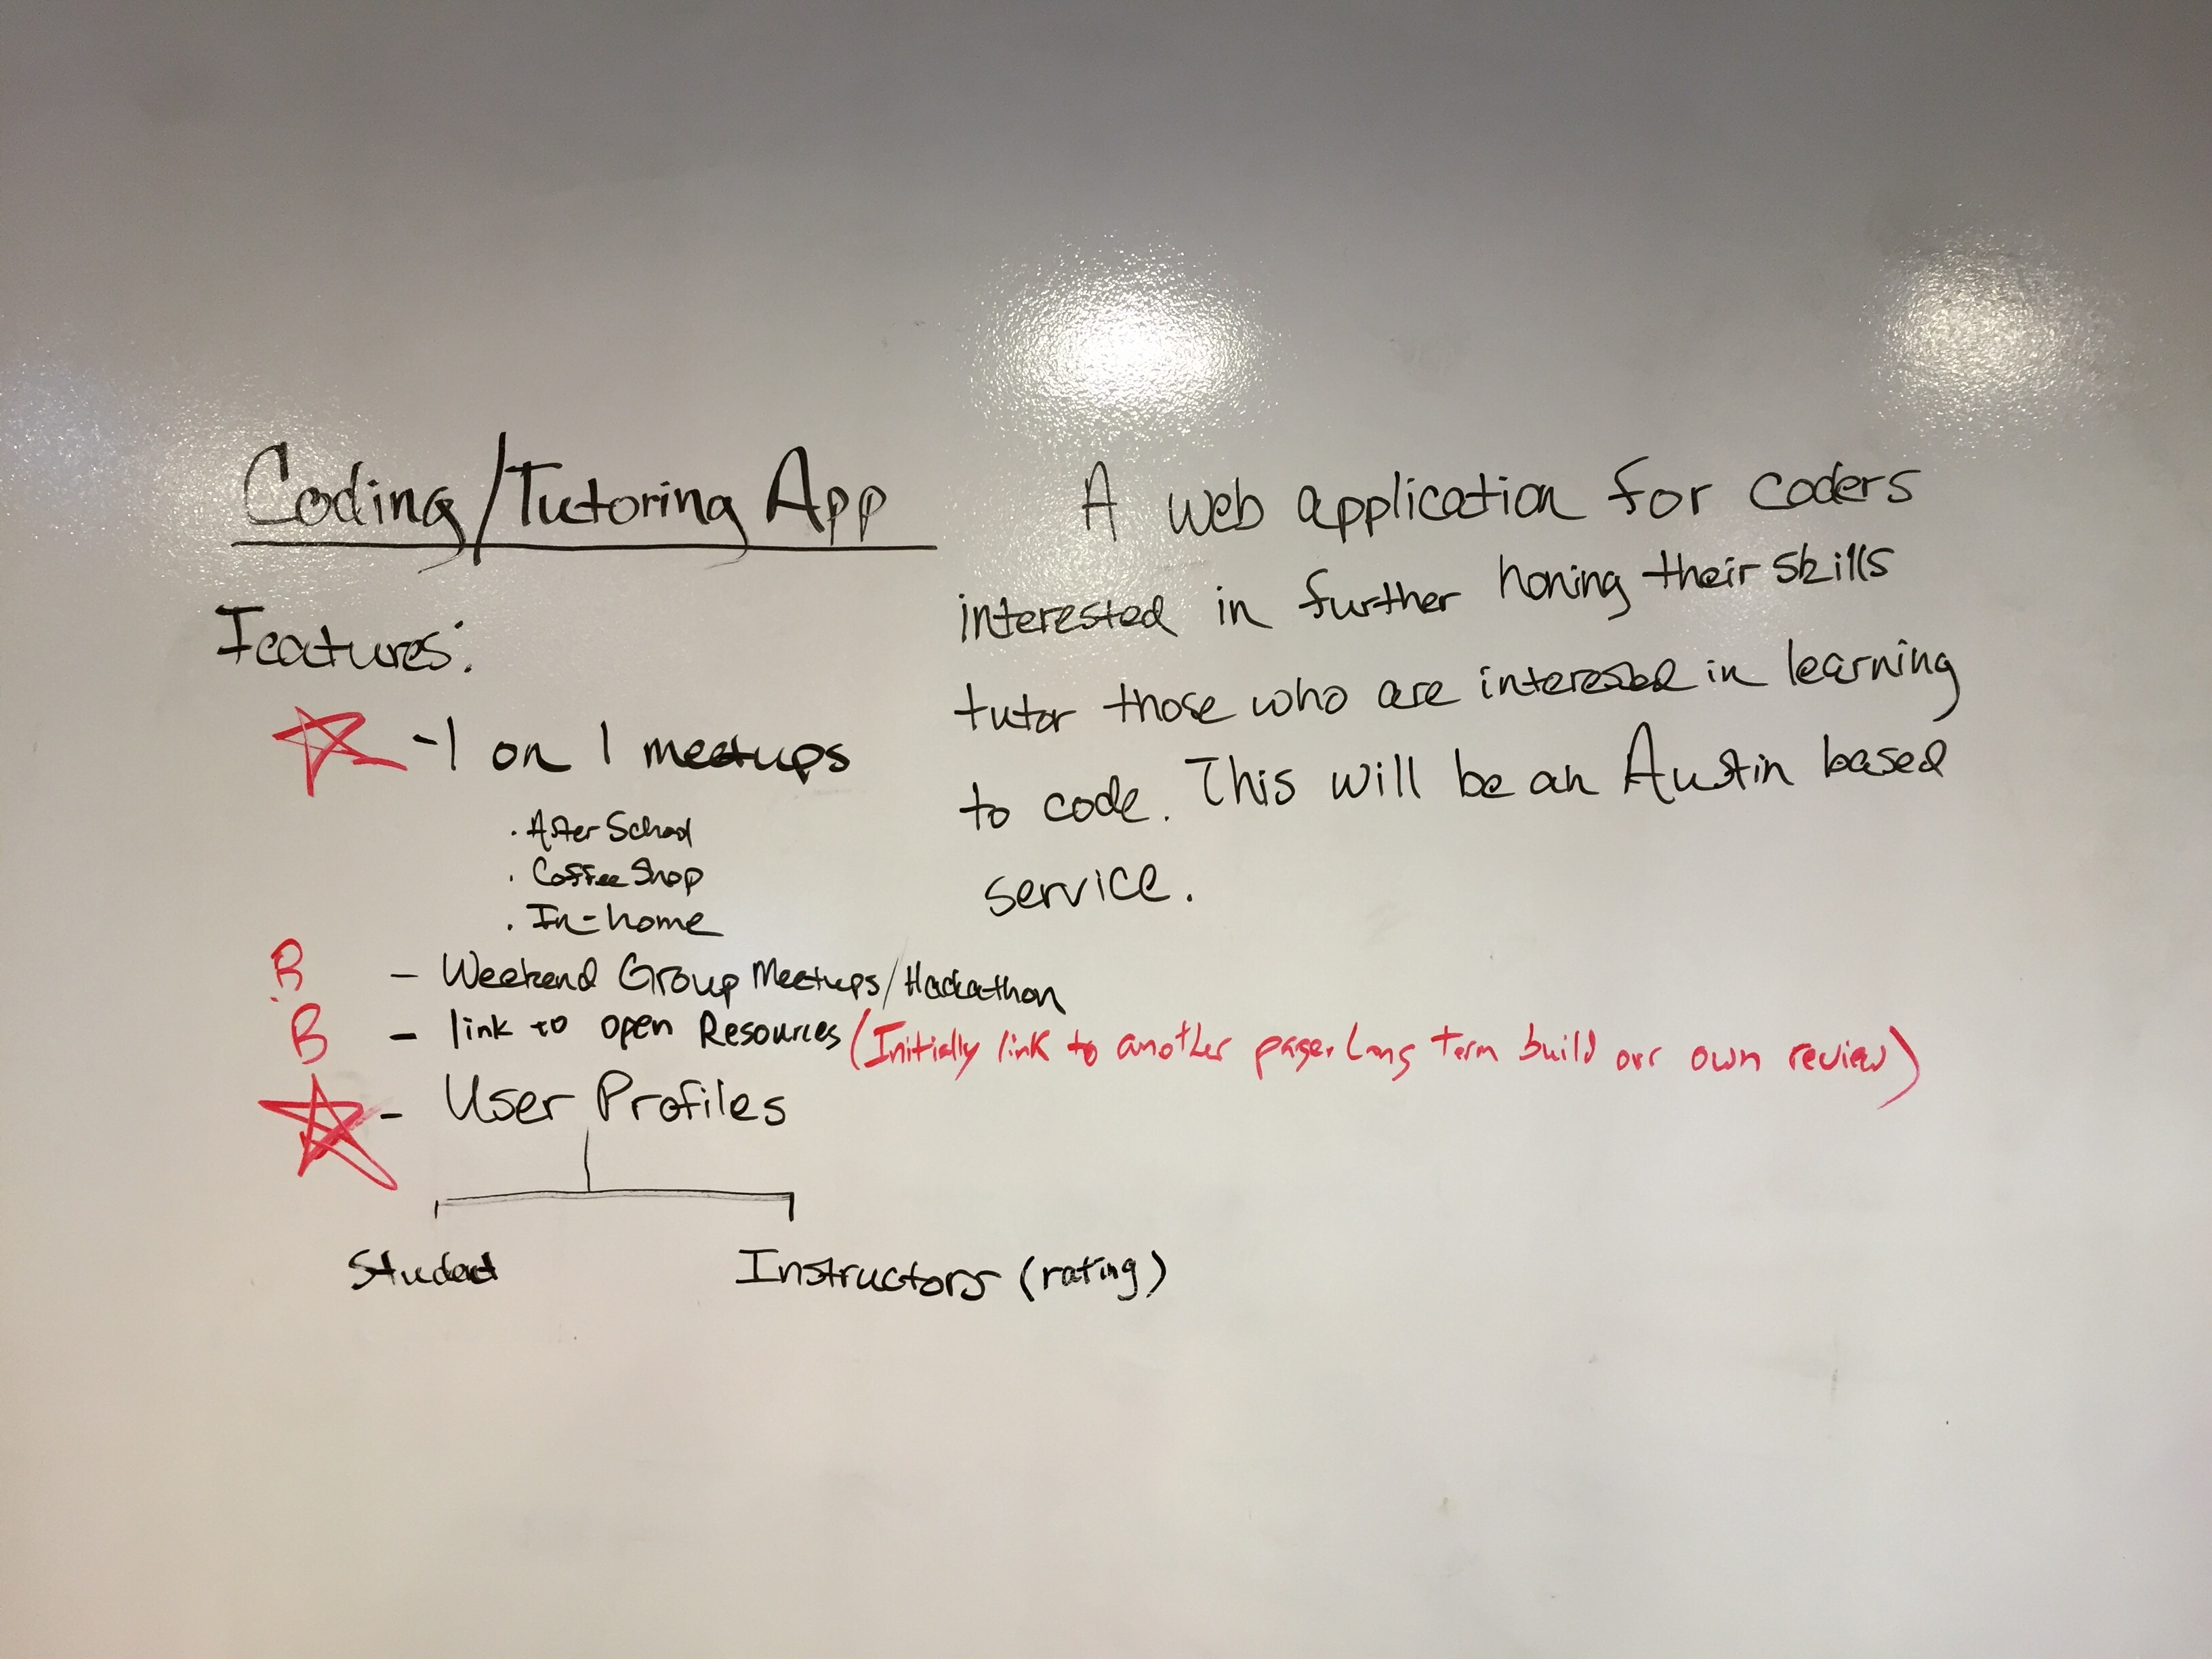 Coding/Tutoring App
Features:
- 1 on 1 meetups
. After School
. Coffee Shop
. In-home
B - Weekend Group Meetups/Hackathon
B - link to open Resources (Initially link to another page. Long term build our own review)
- User Profiles
Student Instructors (rating)
A web application for coders
interested in further honing their skills
tutor those who are interested in learning
to code. This will be an Austin based
service.